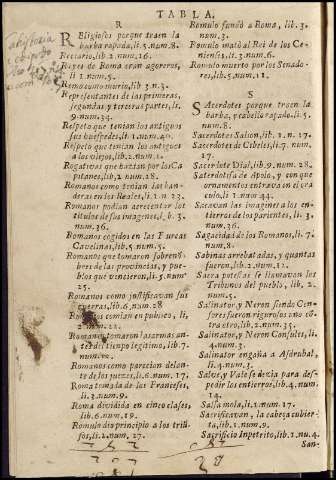 TABLA.
R
REligiosos porque traen la
barba rapada, li.5.num.8.
Reccario, lib.2.num.16.
Reyes de Roma eran agoreros,
li.1.num.5.
Roma como murio, lib.3.n.3.
Representantes de las primeras,
segundas y terceras partes, li.
9.num.34.
Respeto que tenian los antiguos
sus huespedes, li.1.num.40.
Respeto que tenian los antiguos
a los viejos, lib.2.num.1.
Rogativas que hazian por los Ca
pitanes, lib.2 num.28.
Romanos como tenian las han-
deras en los Reales, lib.1 n.23.
Romanos podian acrecentar los
titulos de sus imagenes, li.b.3.
num.36.
Romanos cogidos en las Furcas
Caudinas, lib.5.num.5.
Romanos que tomaron sobrenõ-
bres de las provincias, y pue-
blos que vencieron, li.5.num
25.
Romanos como justificavan sus
guerras, lib.8.num 28
Romanos comian en publico, li,
2.num.22.
Romanos tomaron las armas an-
tes del tiempo legitimo, lib.7.
num.12.
Romanos como parecian delan-
te de los juezes, li.6.num.17.
Roma tomada de los Franceses,
li.3.num.9.
Roma dividida en cinco clases,
lib.6.num.19.
Romulo dio principio a los triũ-
fos, li.2.num.27.
Romulo fundò a Roma, lib.3.
num.3.
Romulo matò al Rei de los Ce-
nienses, li.3.num.6.
Romulo muerto por los Senado-
res, lib.5.num.11.
S
SAcerdotes porque traen la
barba, y cabello rapado. li.5.
num.8.
Sacerdotes Salios, lib.1.n.17.
Sacerdotes de Cibeles, li.7.num.
17.
Sacerdote Dial, lib.9.num.28.
Sacerdotisa de Apolo, y con que
ornamentos entrava en el ora
culo, li 1.num.44.
Sacavan las imagenes a los en-
tierros de los parientes, li.3.
num.36.
Sagacidad de los Romanos, li.7.
num.8.
Sabinas arrebatadas, y quantas
fueron, lib.2.num.11.
Sacra potestas se llamavan los
Tribunos del pueblo, lib 2,
num.4.
Salinator, y Neron siendo Cen-
sores fueron rigurosos uno cõ
tra otro, lib.2.num.35.
Salinator, y Neron Consules, li.
4.num.3.
Salinator engaña a Asdrubal,
li.4.num.3.
Salve, y Vale se dezia para des-
pedir los entierros, lib.4.num.
14.
Salsa mola, li.1.num.17.
Sacrificavan, la cabeça cubier-
ta, lib.1.num.9.
Sacrificio Inpetrito, lib.1.nu.4.
San-